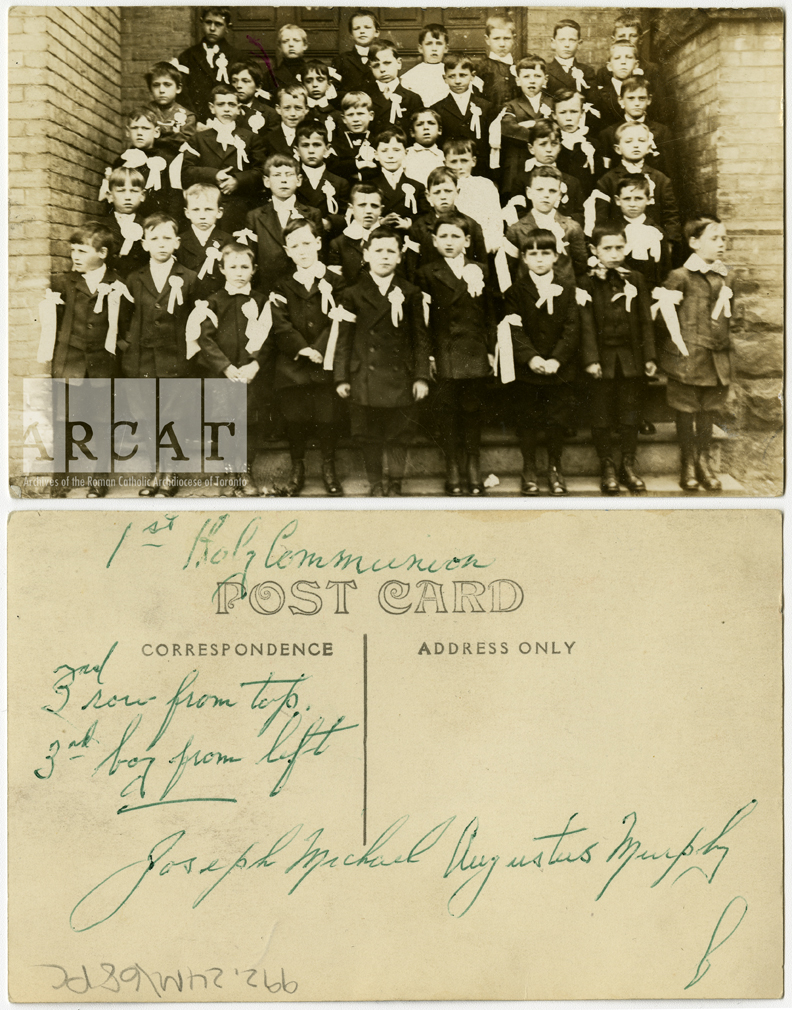 ARCAT
Archives of the Roman Catholic Archdiocese of Toronto
1st Holy Communion
POST CARD
CORRESPONDENCE
ADDRESS ONLY
3rd row from top.
3rd boy from left
Joseph Michael Augustus Murphy
992.24M/68PC